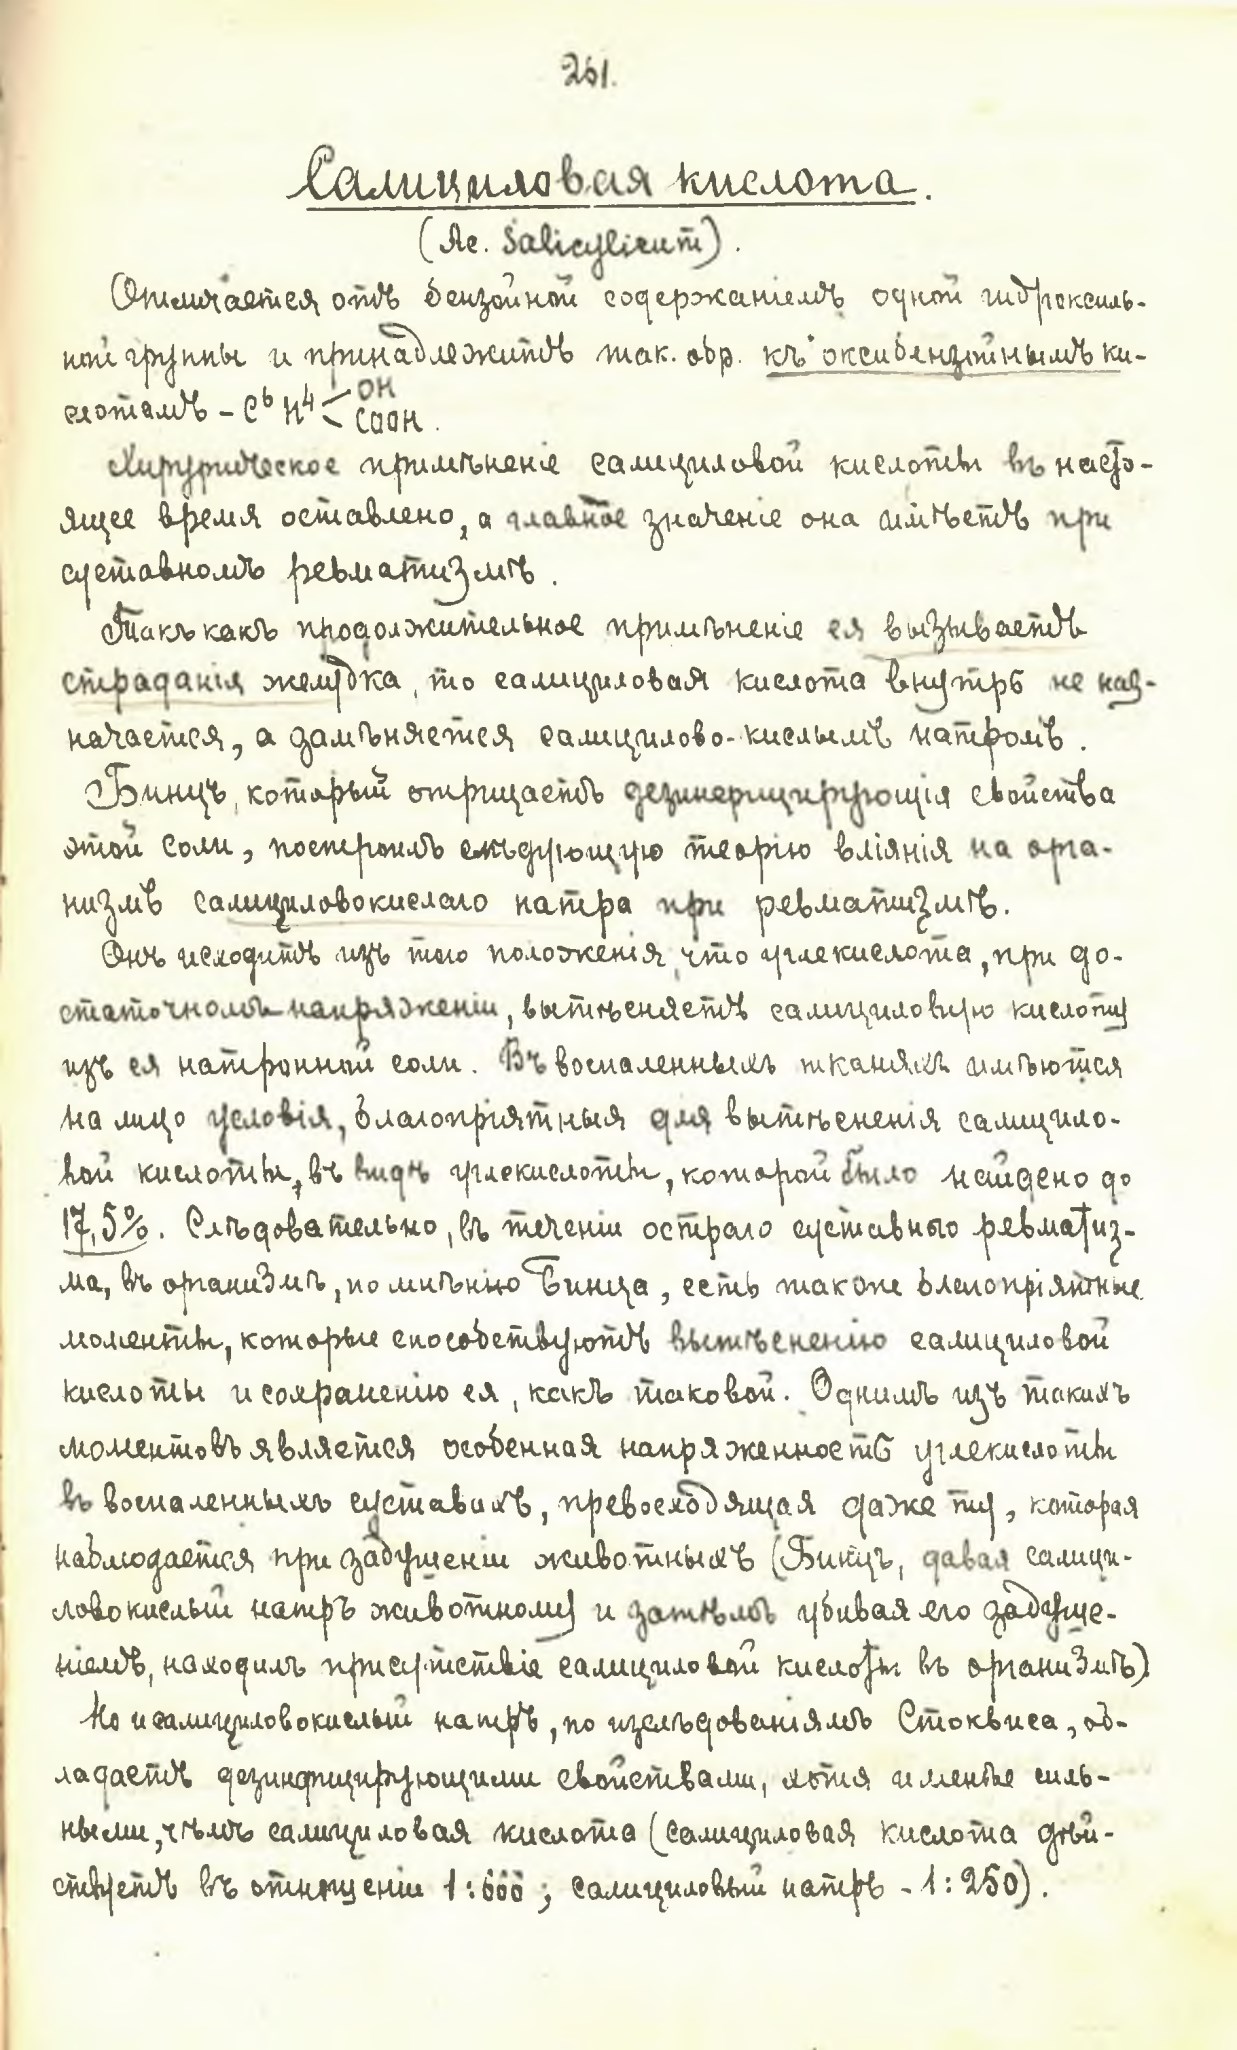 261.
Салициловая кислота.
(Ac. Salicylicum).
Отличается отъ бензойной содержаніемъ одной гидроксиль-
ной группы и принадлежитъ так. обр. къ оксибензойнымъ ки-
слотамъ – C⁶H⁴<OH
COOH.
Хирургическое примѣненіе салициловой кислоты въ насто-
ящее время оставлено, а главное значеніе она имѣетъ при
суставномъ ревматизмѣ.
Такъ какъ продолжительное примѣненіе ея вызываетъ
страданія желудка, то салициловая кислота внутрь не наз-
начается, а замѣняется салицилово-кислымъ натромъ.
Бинцъ, который отрицаетъ дезинфицирующія свойства
этой соли, построилъ слѣдующую теорію вліянія на орга-
низмъ салициловокислаго натра при ревматизмѣ.
Онъ исходитъ изъ того положенія, что углекислота, при до-
статочномъ напряженіи, вытѣсняетъ салициловую кислоту
изъ ея натронной соли. Въ воспаленныхъ тканяхъ имѣются
на лицо условія, благопріятныя для вытѣсненія салицило-
вой кислоты, въ видѣ углекислоты, которой было найдено до
17,5%. Слѣдовательно, въ теченіи остраго суставного ревматиз-
ма, въ организмѣ, по мнѣнію Бинца, есть также благопріятные
моменты, которые способствуютъ вытѣсненію салициловой
кислоты и сохраненію ея, какъ таковой. Однимъ изъ такихъ
моментовъ является особенная напряженность углекислоты
въ воспаленныхъ суставахъ, превосходящая даже ту, которая
наблюдается при задушеніи животныхъ (Бинцъ, давая салици-
ловокислый натръ животному и затѣмъ убивая его задуше-
ніемъ, находилъ присутствіе салициловой кислоты въ организмѣ)
Но и салициловокислый натръ, по изслѣдованіямъ Стоквиса, об-
ладаетъ дезинфицирующими свойствами, хотя и менѣе силь-
ными, чѣмъ салициловая кислота (салициловая кислота дѣй-
ствуетъ въ отношеніи 1:600; салициловый натръ – 1:250).